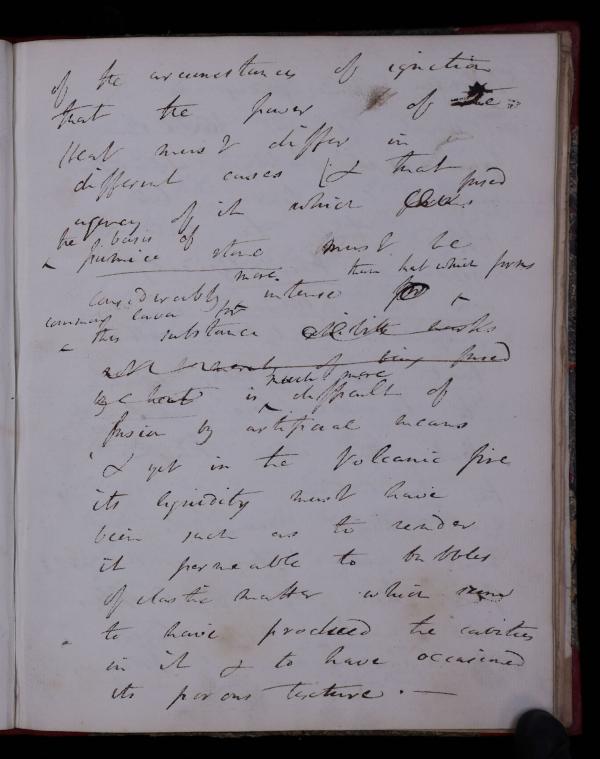 of the circumstances of ignition
that the power of the
Heat must differ in
different cases & that
agency of it which fused
the basis of
pumice stone must be
more than that which forms
considerably intense for
common lava for
this substance
of being fused
much more
by heat is difficult of
fusion by artificial means
& yet in the Volcanic fire
its liquidity must have
been such as to render
it permeable to bubbles
of elastic matter which seem
to have produced the cavities
in it & to have occasioned
its porous texture. —